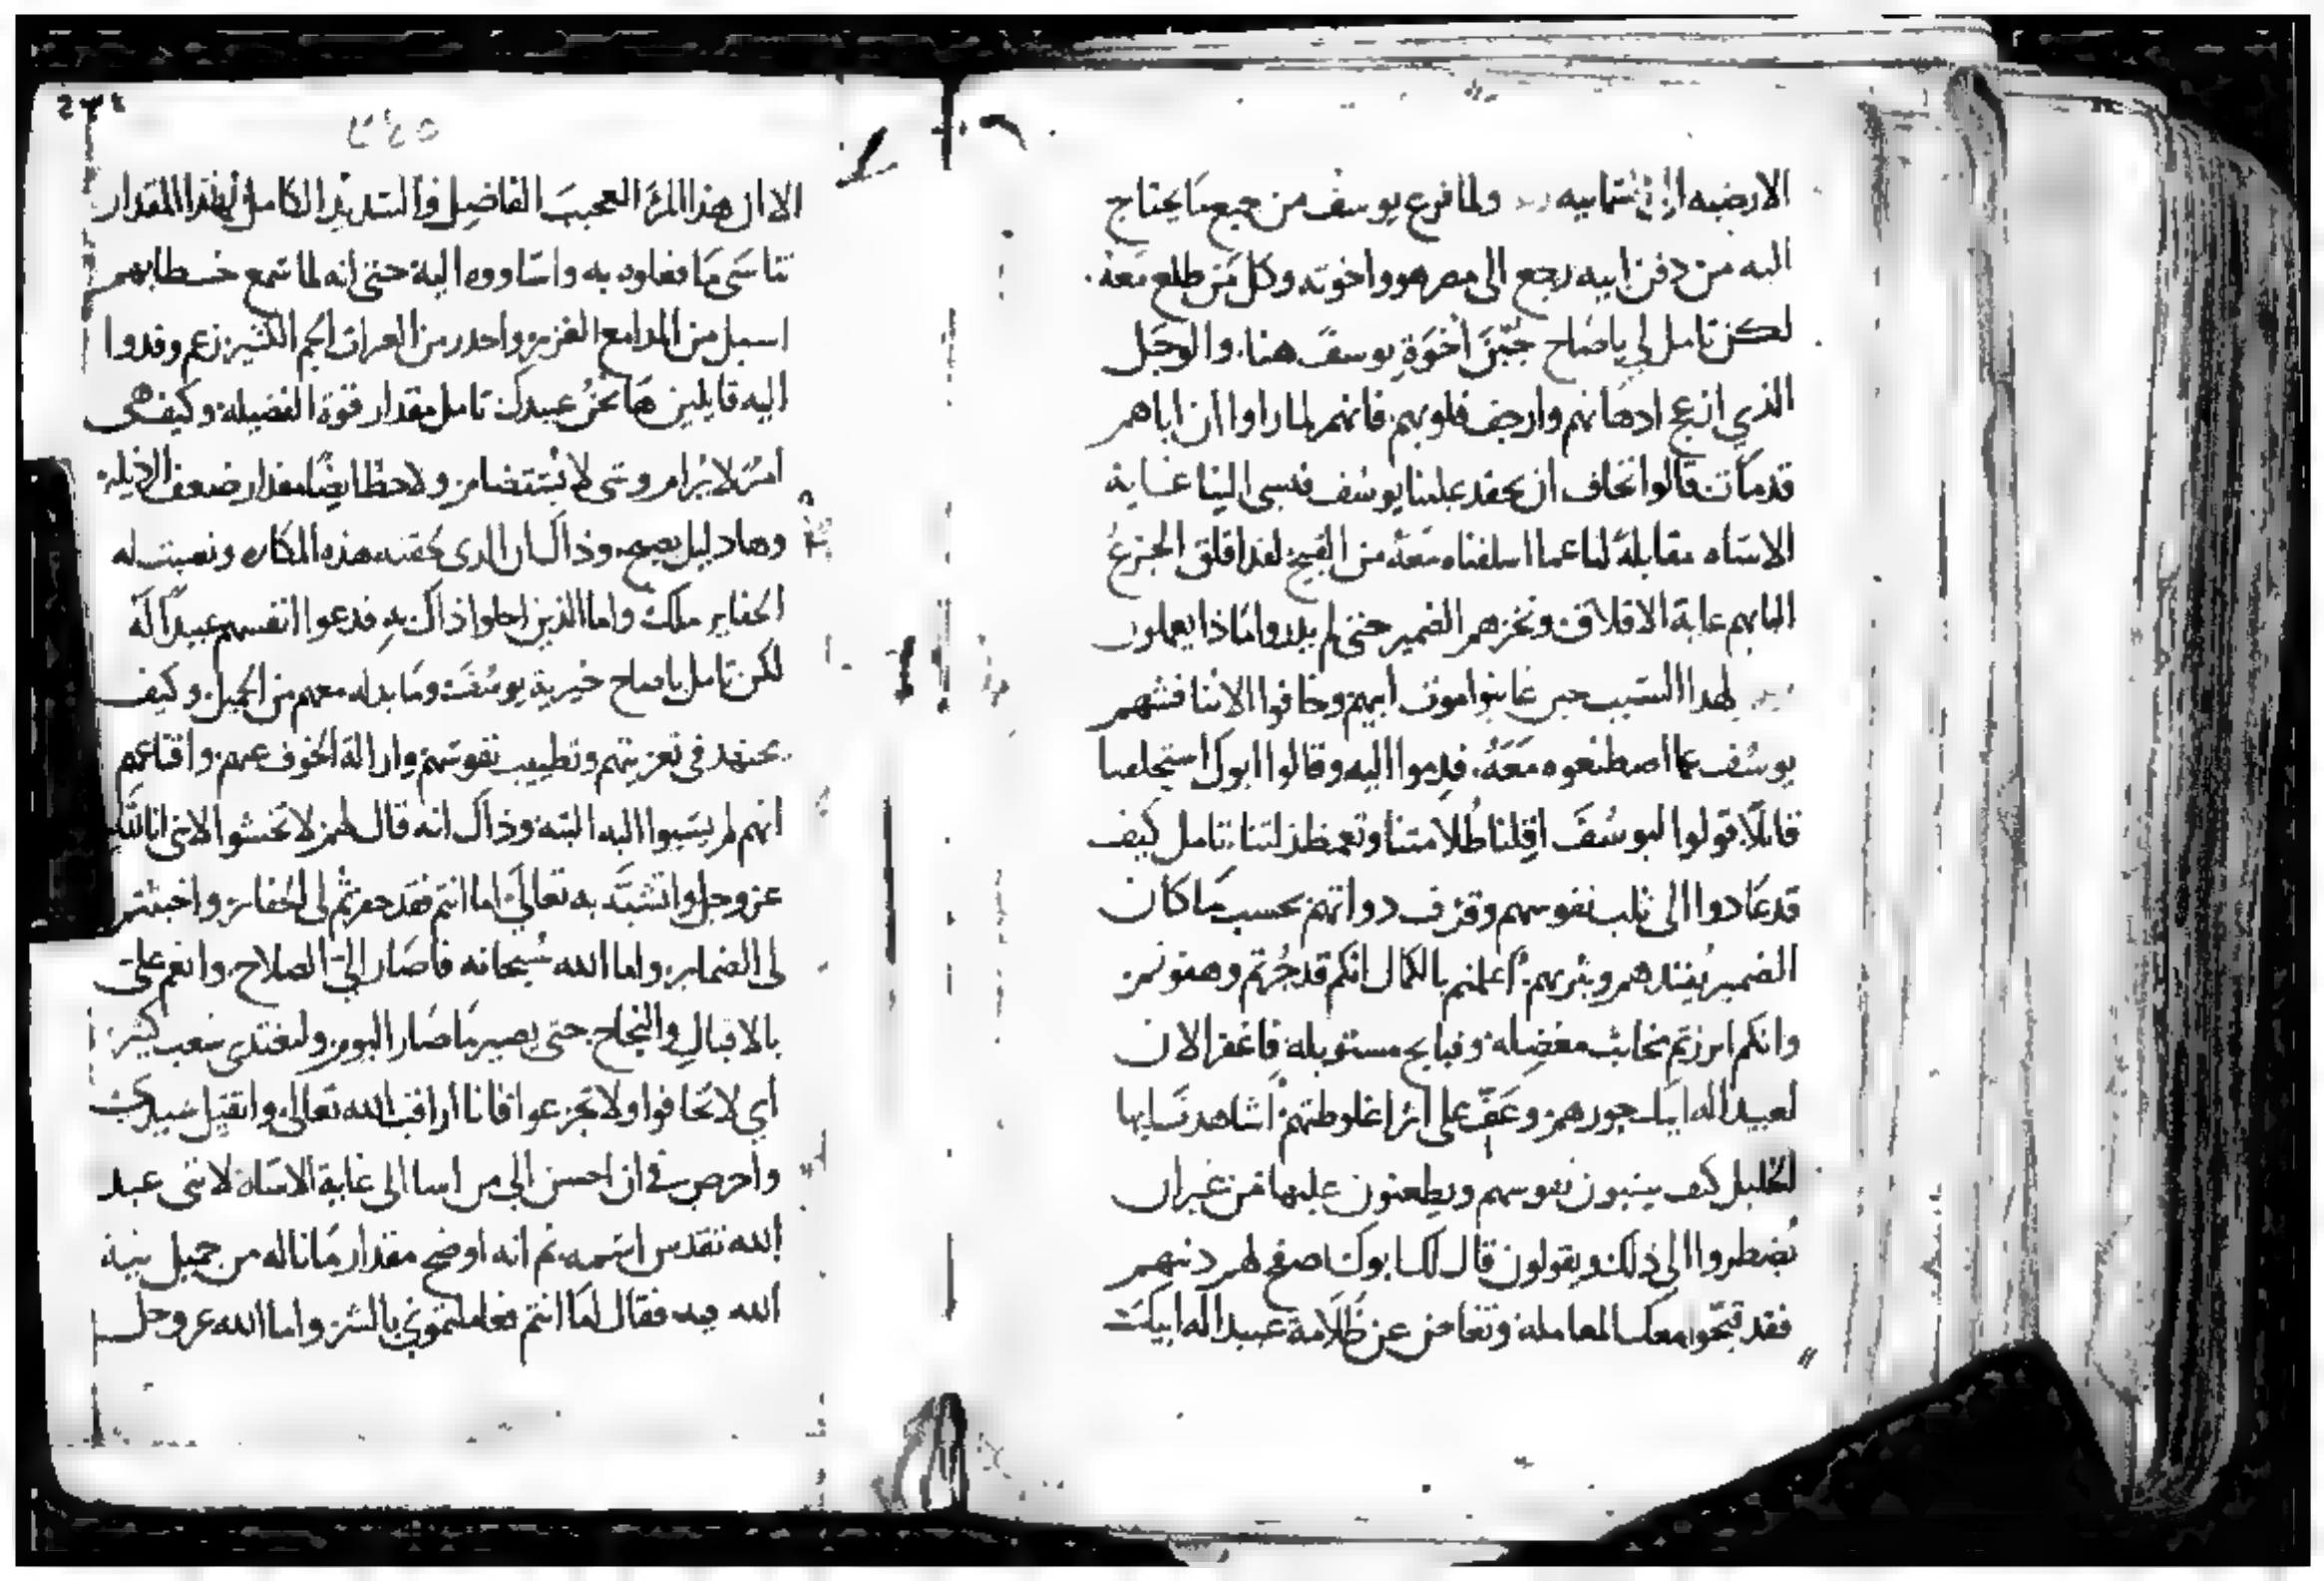 الارضيه الى ولما فرغ يوسف من جميع ما يحتاج
اليه من دفن ابيه رجع الى مصر هو واخوته وكل من طلع معه
لكن تامل لي يا صاح جبن اخوة يوسف هنا والوجل
الذي ازعج ادهانهم وارجف قلوبهم فانهم لما راوا ان اباهم
قد مات قالوا نخاف ان يحقد علينا يوسف فيسي الينا غاية
الاساه مقابلة لنا عما اسلفناه معه من القبيح لقد اقلق الجزع
البابهم غاية الاقلاق ونخزهم الضمير حتى لم يدروا ماذا يعملون
لهدا السبب حين عاينوا موت ابيهم وخافوا الانتقا
يوسف عما اصطنعوه معه قدموا اليه وقالوا ابوك استحلفنا
قايلا قولوا ليوسف اقلنا ظلامتنا وتعمظ زلتنا تامل كيف
قد عادوا الى ثلب نفوسهم وقرف دواتهم بحسب ما كان
الضمير يفندهم اعلنهم بالكمال انكم قد جرتم وهفوتم
وانكم ابرزتم مخابث معضله وقبايح مستوبله فاغفر الان
لعبيد اله ابيك جورهم وعف على اثر اغلوطتهم اشاهد نسايها
كيف يسبون نفوسهم ويطعنون عليها من غير ان
يضطروا الى ذلك ويقولون قال لك ابوك اصفح لهم دنبهم
فقد قبحوا معك المعامله وتغاض عن ظلامة عبيد اله ابيك
٢٤٥
الا ان هذا المرء العجيب الفاضل والسديد الكامل لهذا المقدار
تناسى ما فعلوه به واساووه اليه حتى انه لما سمع خطابهم
اسبل من المدامع الغزير واحدر من العبرات الجم الكثير نعم وقدوا
اليه قايلين ها نحن عبيدك تامل مقدار قوة الفضيله وكيف هي
امر لا يرام وشي لا يستضام ولاحظ ايضا مقدار ضعف الرذيله
وهاك دليل يصح وذاك ان الدي هذه المكاره ونصبت له
الحفاير ملك واما الذين احلوا ذاك به فدعوا انفسهم عبيدا له
لكن تامل يا صاح خيرية يوسف وما بدله معهم من الجميل وكيف
يجتهد في تعزيتهم وتطييب نفوسهم وازالة الخوف عنهم واقناعهم
انهم لم يسيوا اليه البته وذاك انه قال لهم لا تخشوا لاني انا لله
عز وجل تعالى اما انتم فقد حفرتم لي الحفاير واخبثتم
لي الضماير واما الله سبحانه فاصار الي الصلاح وانعم علي
بالاقبال والنجاح حتى يصير ما صار اليوم وليغتدي شعب كثير
اي لا تخافوا ولا تجزعوا فانا اراقب الله تعالى واتقبل سيدك
واحرص في ان احسن الى من اسا الي غاية الاساه لانني عبد
الله تقدس اسمه ثم انه اوضح مقدار ما ناله من جميل نية
الله فيه فقال اما انتم فعاملتموني بالشر واما الله عز وجل